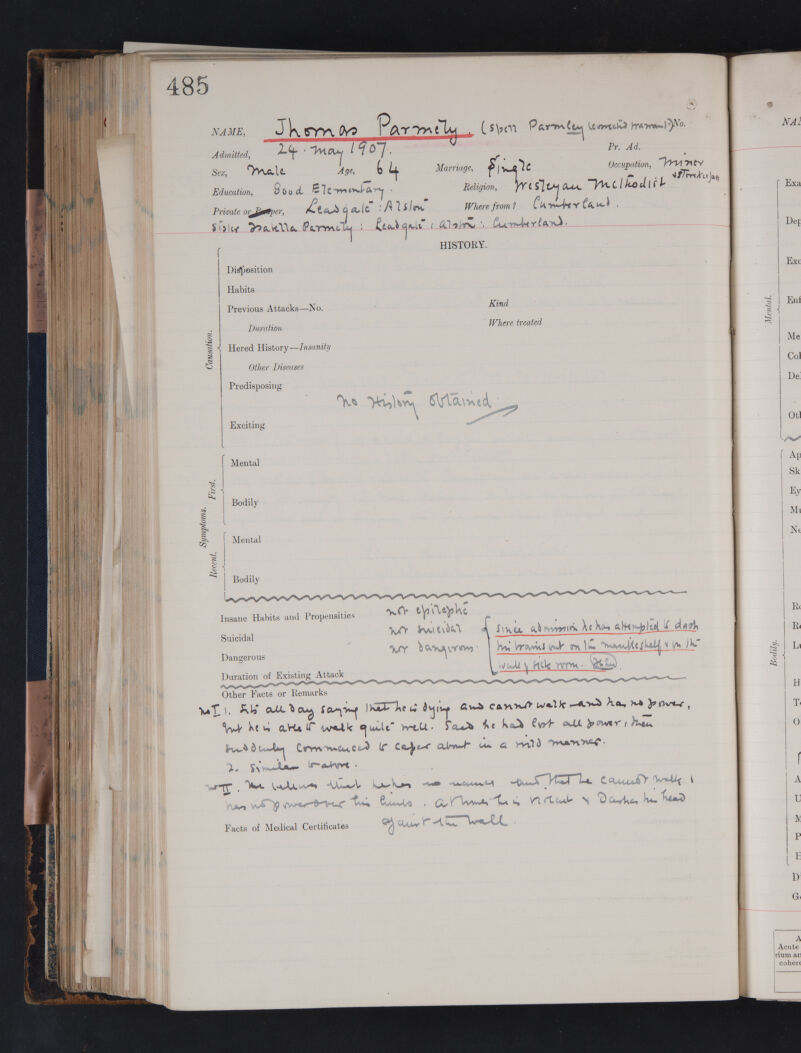 485
NAME, Thomas Parmety. (Spell Parmley (corrected warrant?) No.
Admitted, 24. May 1907. Pr. Ad.
Sex, Male Age, 64 Marriage, Single Occupation, Miner
Education, Good Elementary. Religion, Wesleyan Methodist
Private or Pauper, Leadgate : Alston Where from? Cumberland.
Sister Isabella Parmety : Leadgate : Alston : Cumberland.
HISTORY.
Causation.
Disposition
Habits
Previous Attacks—No. Kind
Duration Where treated
Hered History—Insanity
Other Diseases
Predisposing
No History Obtained
Exciting
Symptoms.
First.
Mental
Bodily
Recent.
Mental
Bodily
Insane Habits and Propensities not epileptic
Suicidal not suicidal
Dangerous not dangerous
Since admission he has attempted to dash
his brains out on the mantleshelf & on the
wall of sick room.
Duration of Existing Attack
Other Facts or Remarks
No I 1. Sits all day saying that he is dying and cannot walk and has no power,
but he is able to walk quite well. Said he had lost all power, then
suddenly commenced to caper about in a wild manner.
2. Similar to above.
No II. He believes that he has no and that he cannot walk &
has no power over his limbs. At times he is violent & Dashes his head
against the wall.
Facts of Medical Certificates
NAM
Mental.
Exa
Dep
Exc
Enf
Me
Col
Del
Oth
Bodily.
Ap
Sk
Ey
Mu
Ne
Re
Re
Lu
H
Te
O
A
U
M
P
H
D
Ge
A
Acute
rium an
cohere